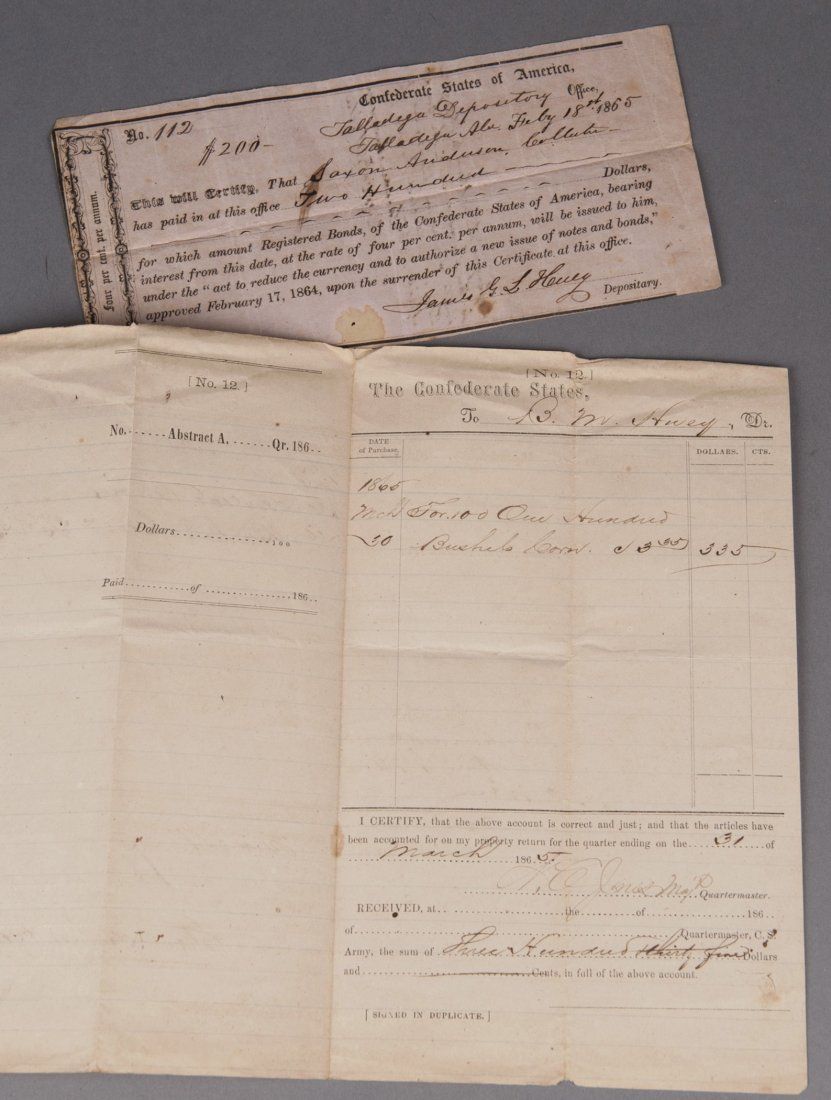 Confederate States of America,
No. 112
Talladega Depository Office,
$200-
Talladega Ala. Feby 18st 1865
This will Certify, That Saxon Anderson,
has paid in at this office Two Hundred Dollars,
for which amount Registered Bonds, of the Confederate States of America, bearing
interest from this date, at the rate of four per cent. per annum, will be issued to him,
under the "act to reduce the currency and to authorize a new issue of notes and bonds,"
approved February 17, 1864, upon the surrender of this Certificate at this office.
James G. L. Huey
Depositary.
four per cent. per annum.
[No. 12.]
No. ...... Abstract A, ...... Qr. 186..
Dollars ................ 100
Paid ........... of ............... 186..
[No. 12.]
The Confederate States,
To B. M. Huey, Dr.
DATE of Purchase, DOLLARS. CTS.
1865
Mch For 100 One Hundred
30 Bushels Corn. 3 35 335
I CERTIFY, that the above account is correct and just; and that the articles have
been accounted for on my property return for the quarter ending on the 31 of
March 1865.
Jones Maj
Quartermaster.
RECEIVED, at ............ the ........ of ............ 186
of ............ Quartermaster, C. S.
Army, the sum of Three Hundred thirty five Dollars
and ............ Cents, in full of the above account.
[SIGNED IN DUPLICATE.]